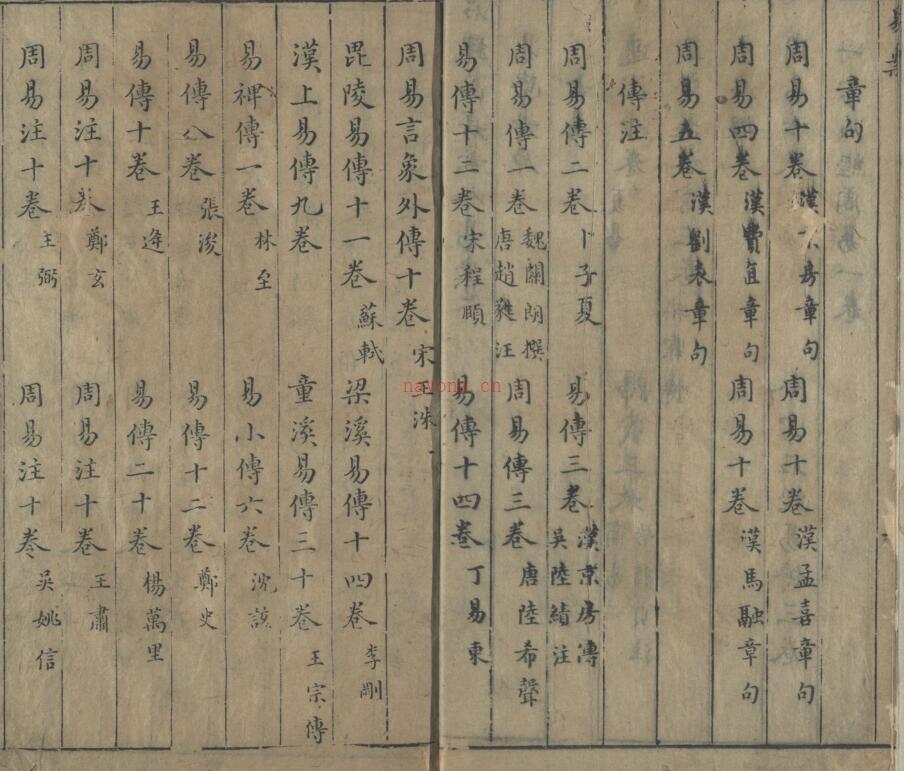 章句
周易十卷 漢京房章句 周易十卷 漢孟喜章句
周易四卷 漢費直章句 周易十卷 漢馬融章句
周易五卷 漢劉表章句
傳注
周易傳二卷 卜子夏 易傳三卷 漢京房傳 吳陸績注
周易傳一卷 魏關朗撰 唐趙蕤注 周易傳三卷 唐陸希聲
易傳十二卷 宋程頤 易傳十四卷 丁易東
周易言象外傳十卷 宋王洙
毘陵易傳十一卷 蘇軾 梁溪易傳十四卷 李剛
漢上易傳九卷 童溪易傳三十卷 王宗傳
易裨傳一卷 林至 易小傳六卷 沈該
易傳八卷 張浚 易傳十二卷 鄭史
易傳十卷 王逄 易傳二十卷 楊萬里
周易注十卷 鄭玄 周易注十卷 王肅
周易注十卷 王弼 周易注十卷 吳姚信
nayona.cn